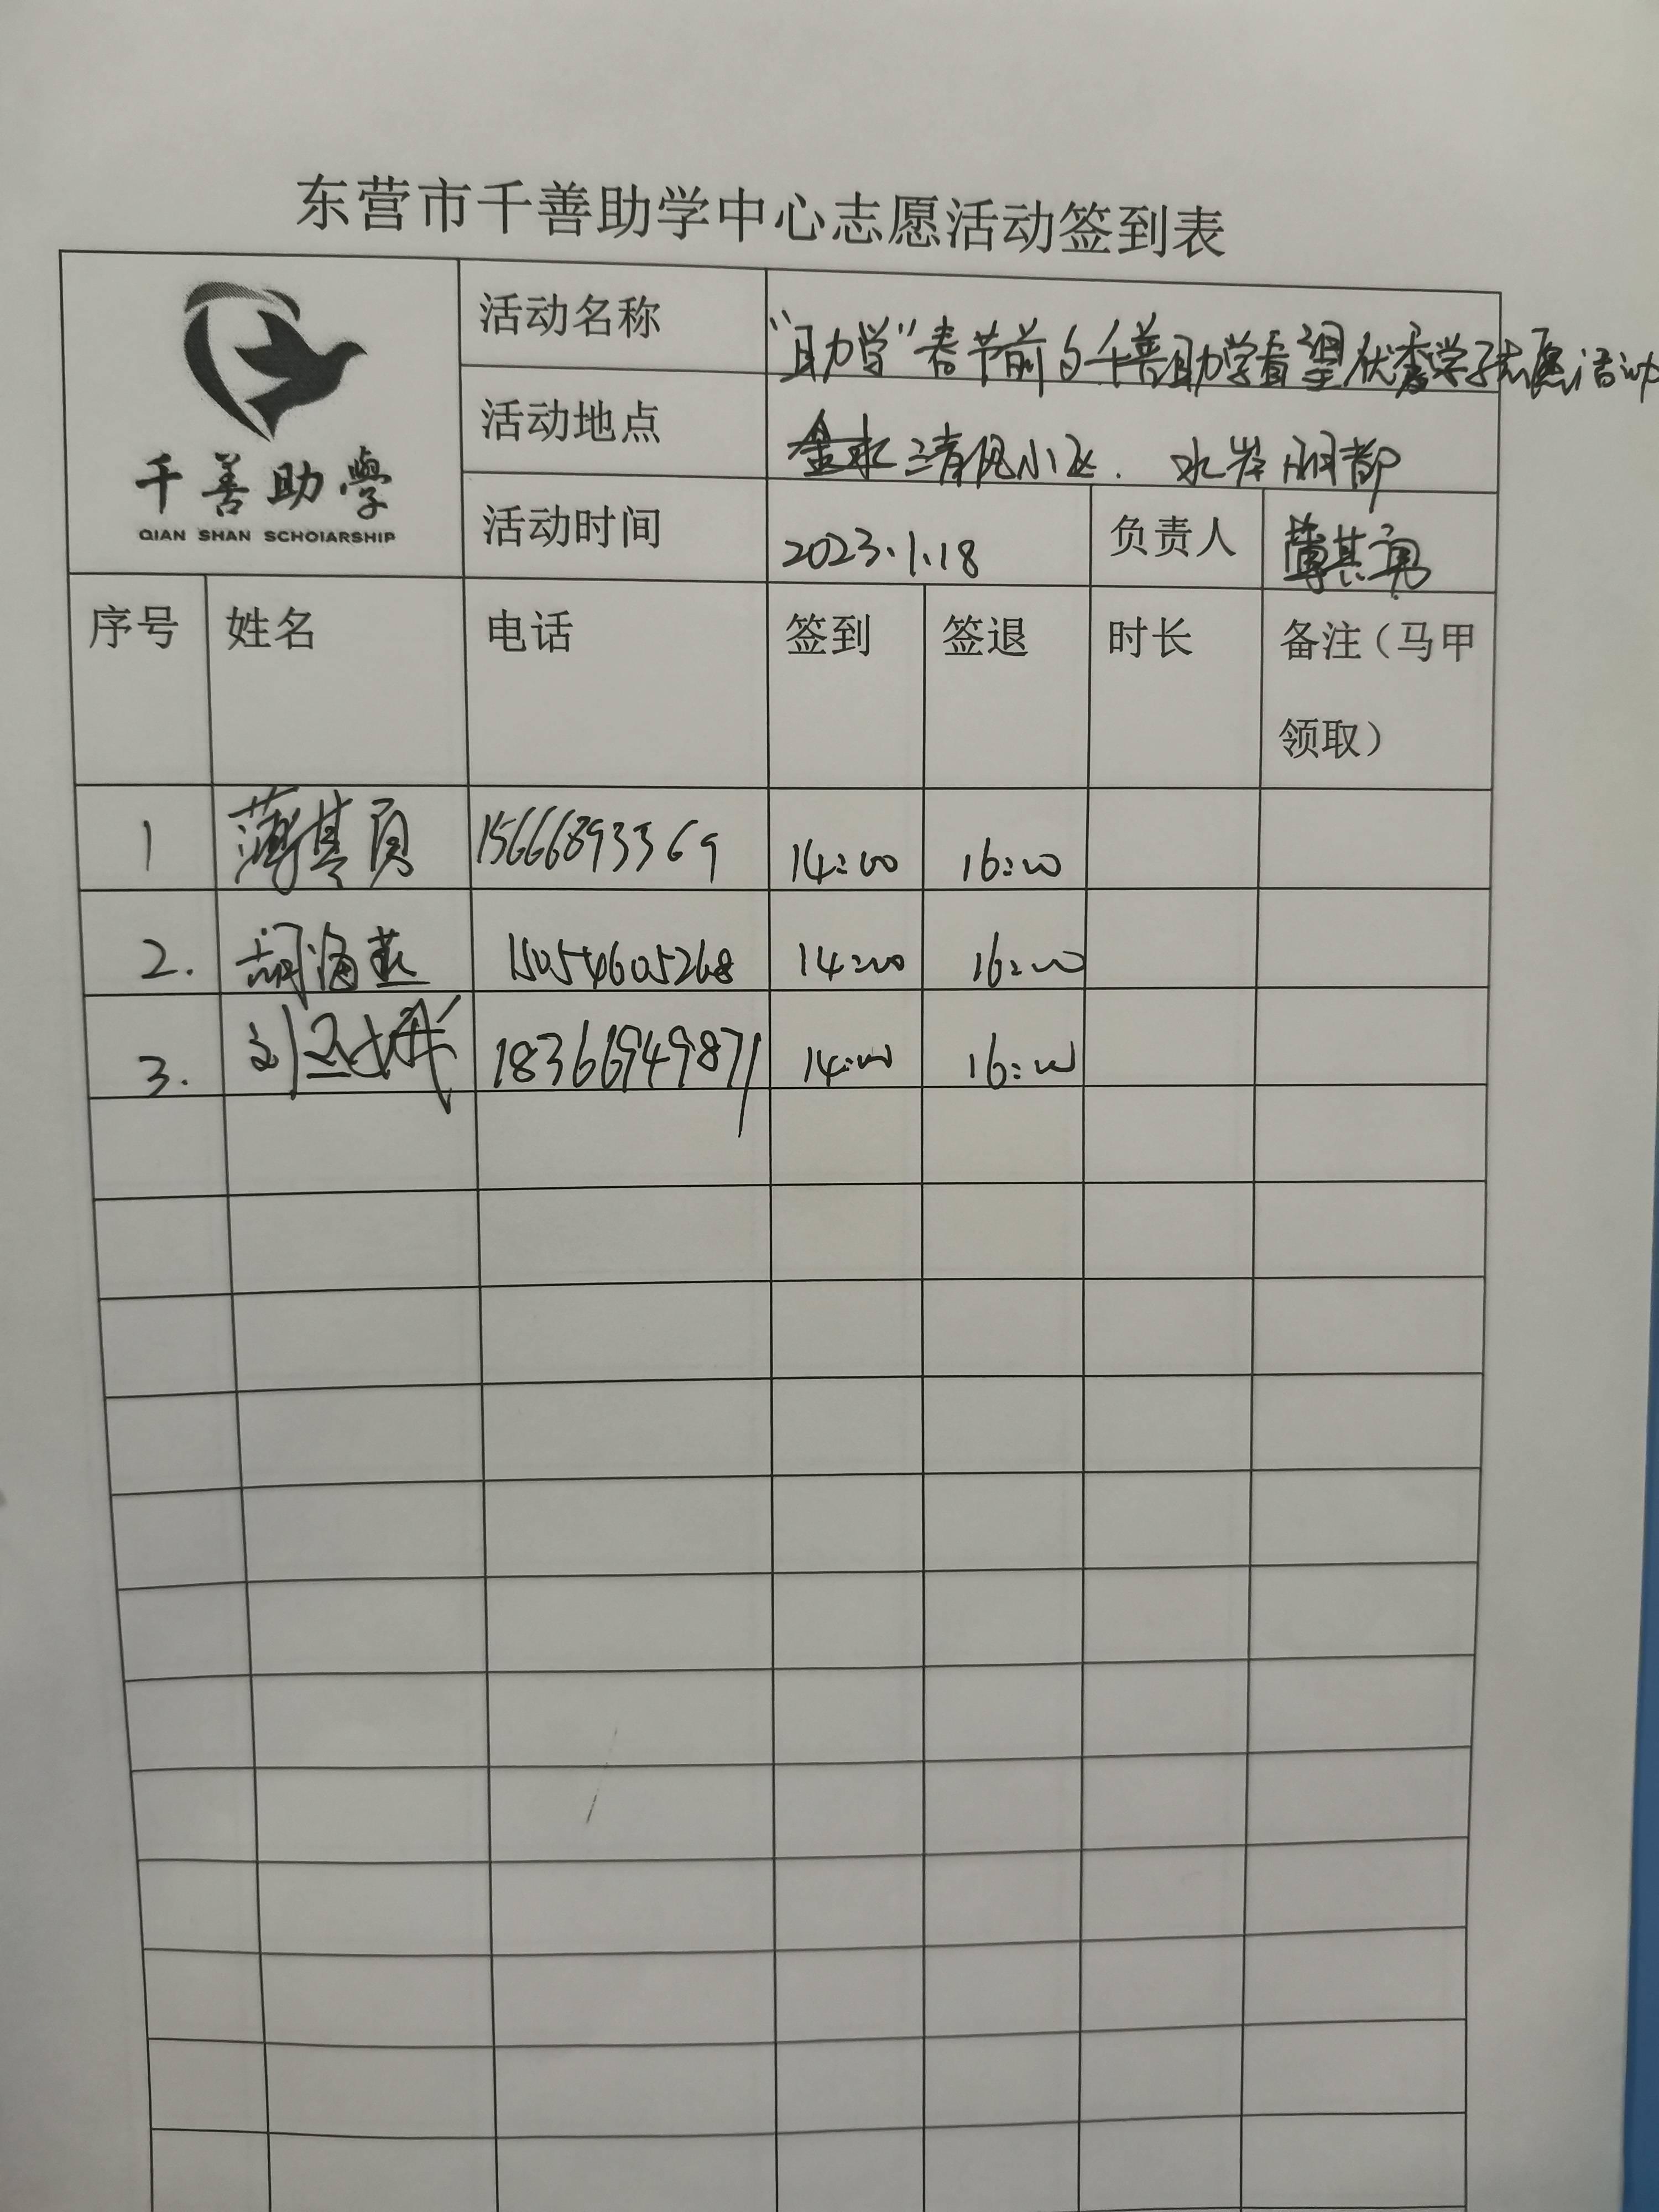 东营市千善助学中心志愿活动签到表
千善助學
QIAN SHAN SCHOlARSHIP
活动名称 “助学”春节前的千善助学看望优秀学子志愿活动
活动地点 清风小区. 水岸丽都
活动时间 2023.1.18 负责人 薄其勇
序号 姓名 电话 签到 签退 时长 备注(马甲
领取)
1 薄其 15666893369 14:00 16:00
2. 胡海燕 15054605268 14:00 16:00
3. 刘 18366949871 14:00 16:00